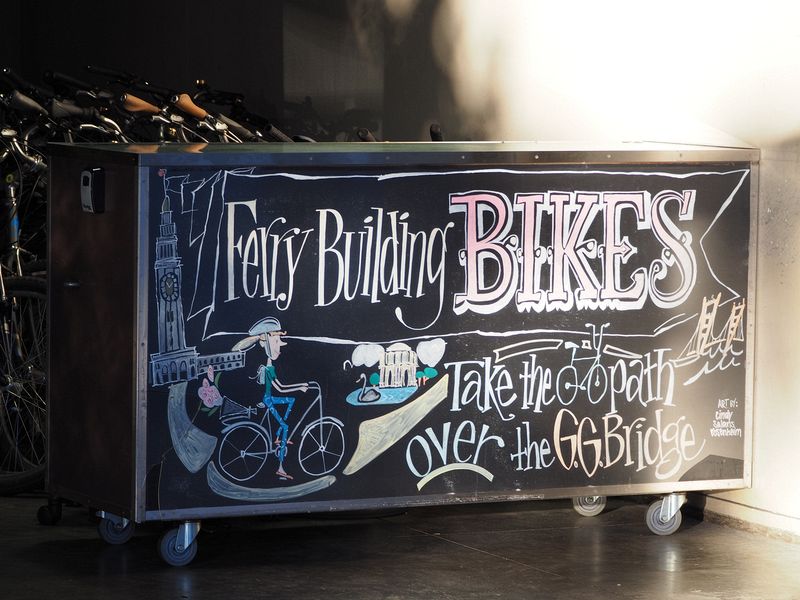 Ferry Building BIKES
Take the path
over the G.G. Bridge
ART BY:
Cindy